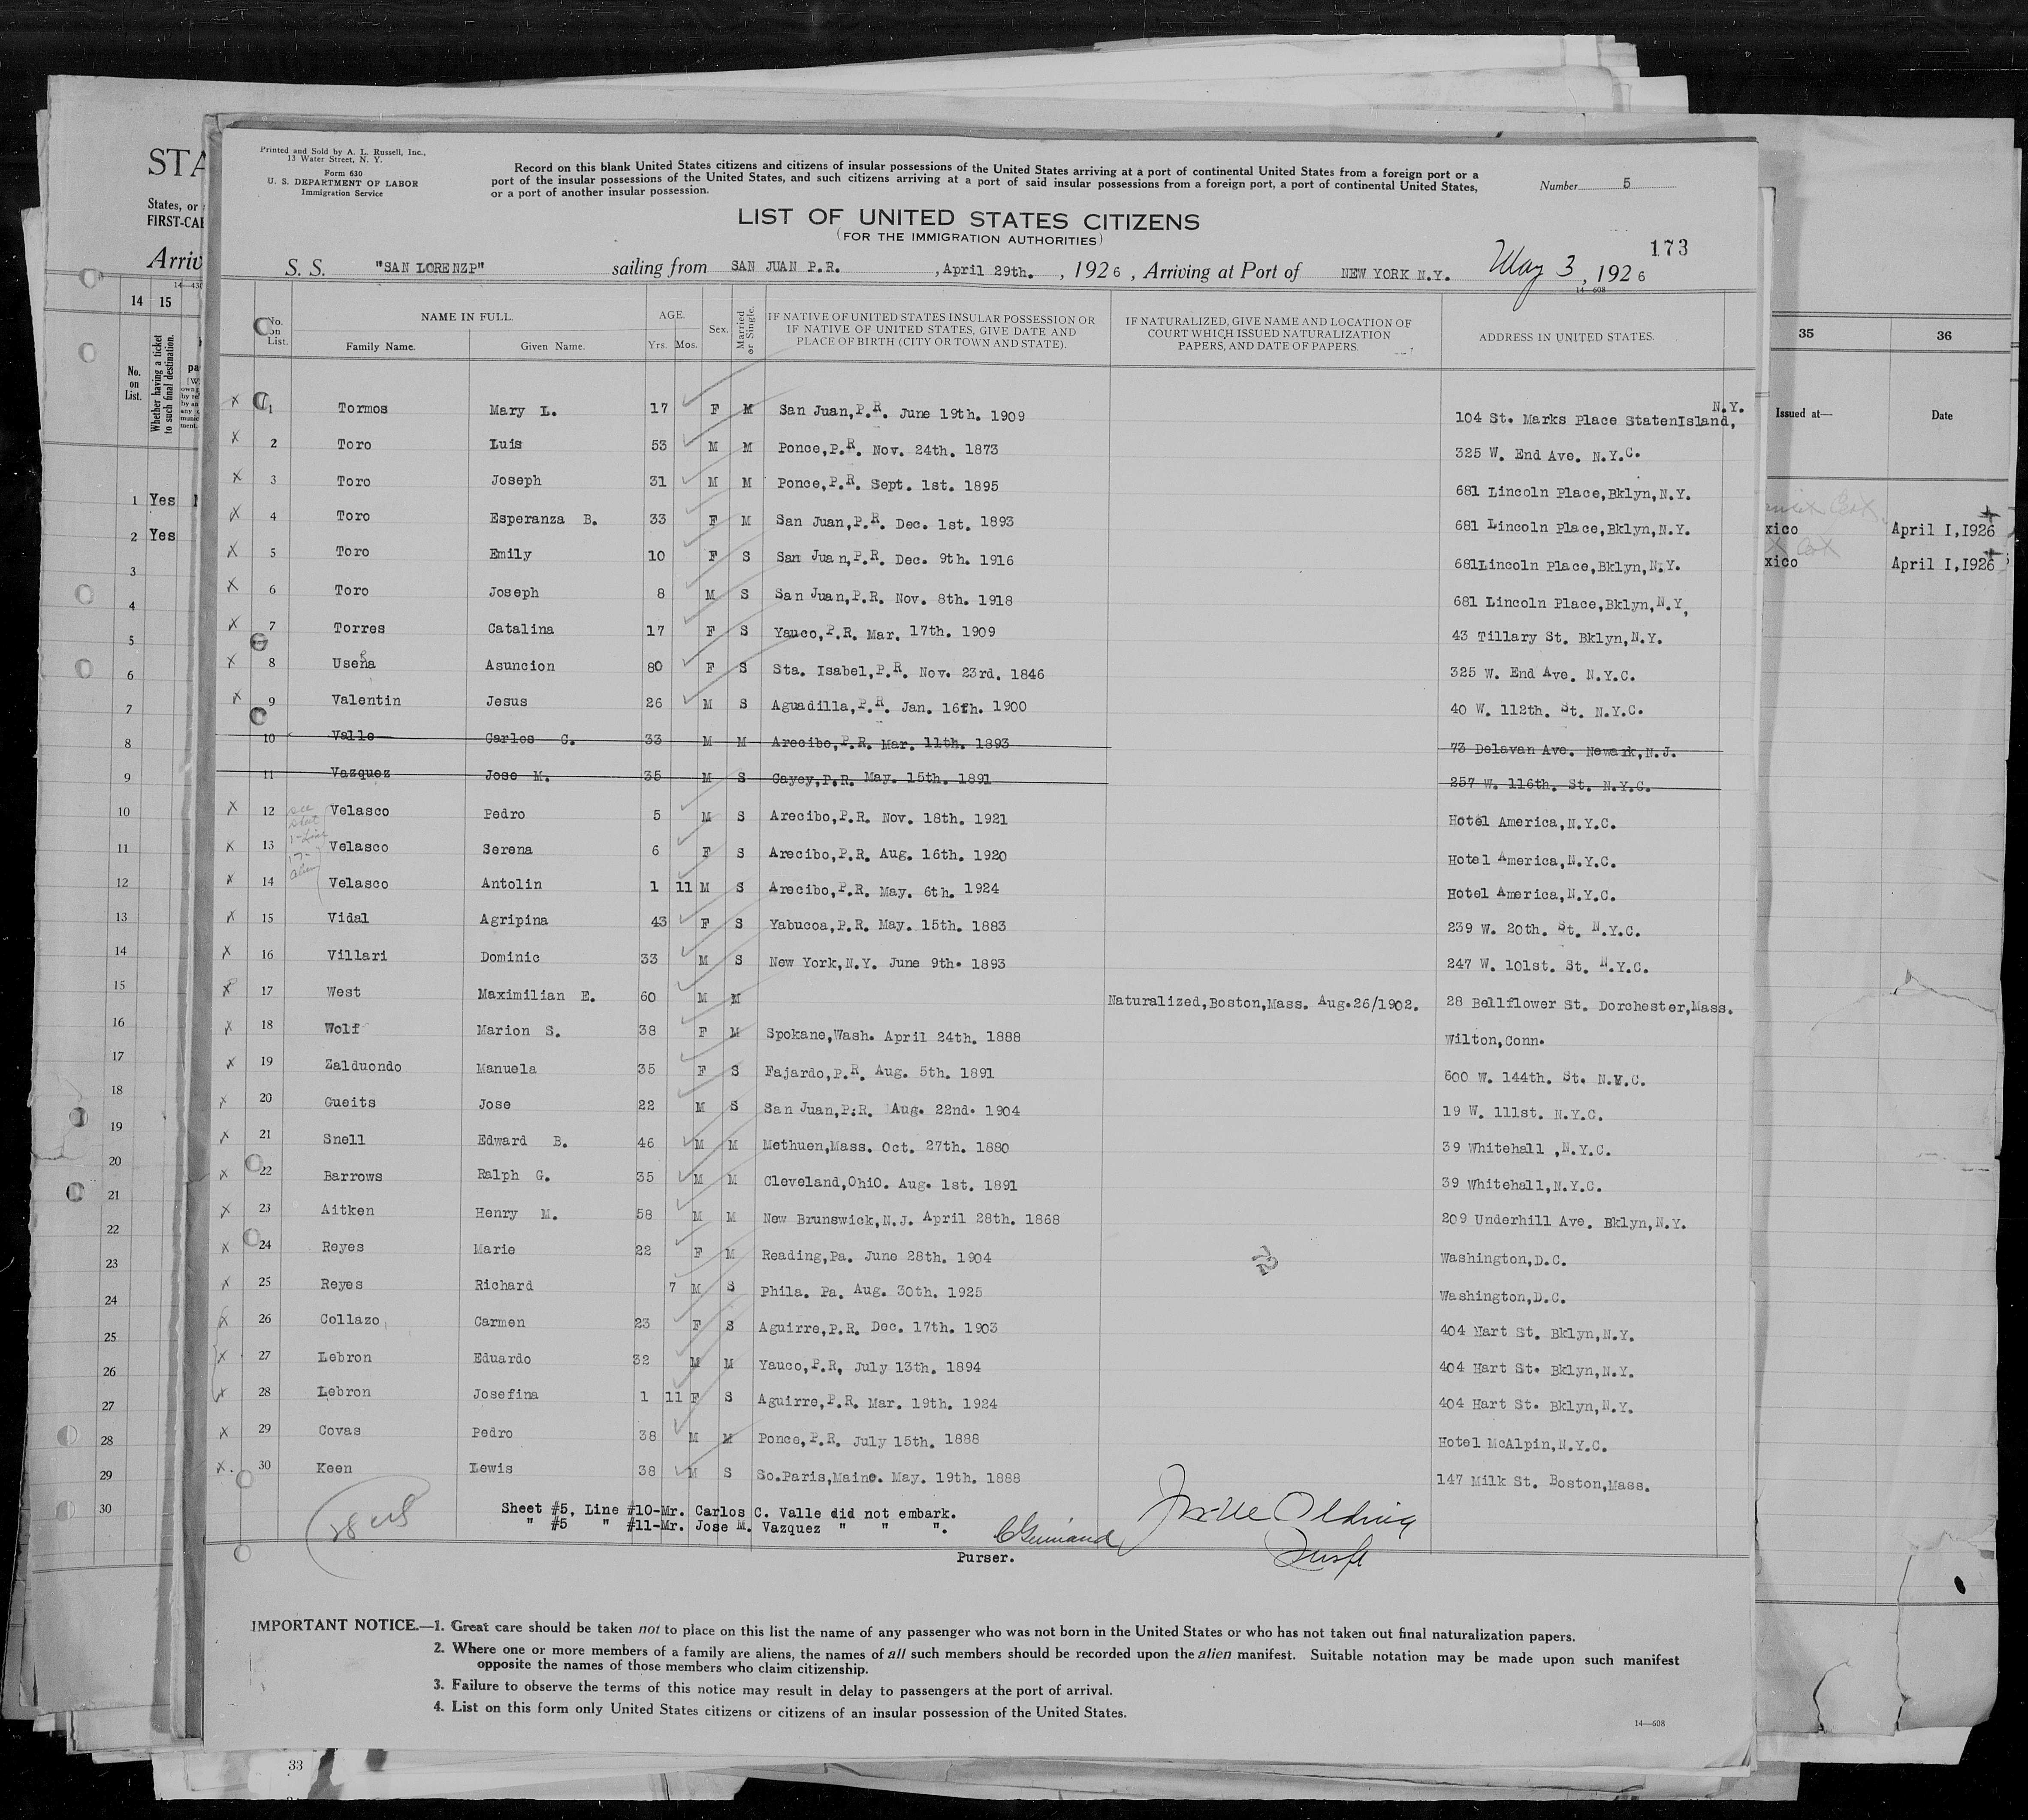 Printed and Sold by A. L. Russell, Inc.,
13 Water Street, N. Y.
Form 630
U. S. DEPARTMENT OF LABOR
Immigration Service
Record on this blank United States citizens and citizens of insular possessions of the United States arriving at a port of continental United States from a foreign port or a
port of the insular possessions of the United States, and such citizens arriving at a port of said insular possessions from a foreign port, a port of continental United States,
or a port of another insular possession.
Number 5
LIST OF UNITED STATES CITIZENS
(FOR THE IMMIGRATION AUTHORITIES)
173
S. S. "SAN LORENZP" sailing from SAN JUAN P.R. , April 29th. , 1926 , Arriving at Port of NEW YORK N.Y. May 3 , 1926
14—608
No. on List. NAME IN FULL. Family Name. Given Name. AGE. Yrs. Mos. Sex. Married or Single. IF NATIVE OF UNITED STATES INSULAR POSSESSION OR IF NATIVE OF UNITED STATES, GIVE DATE AND PLACE OF BIRTH (CITY OR TOWN AND STATE). IF NATURALIZED, GIVE NAME AND LOCATION OF COURT WHICH ISSUED NATURALIZATION PAPERS, AND DATE OF PAPERS. ADDRESS IN UNITED STATES.
x 1 Tormos Mary L. 17 F M San Juan,P.R. June 19th. 1909 104 St. Marks Place StatenIsland, N.Y.
x 2 Toro Luis 53 M M Ponce,P.R. Nov. 24th. 1873 325 W. End Ave. N.Y.C.
x 3 Toro Joseph 31 M M Ponce,P.R. Sept. 1st. 1895 681 Lincoln Place,Bklyn,N.Y.
x 4 Toro Esperanza B. 33 F M San Juan,P.R. Dec. 1st. 1893 681 Lincoln Place,Bklyn,N.Y.
x 5 Toro Emily 10 F S San Juan,P.R. Dec. 9th. 1916 681Lincoln Place,Bklyn,N.Y.
x 6 Toro Joseph 8 M S San Juan,P.R. Nov. 8th. 1918 681 Lincoln Place,Bklyn,N.Y,
x 7 Torres Catalina 17 F S Yauco,P.R. Mar. 17th. 1909 43 Tillary St. Bklyn,N.Y.
x 8 Usena Asuncion 80 F S Sta. Isabel,P.R. Nov. 23rd. 1846 325 W. End Ave. N.Y.C.
x 9 Valentin Jesus 26 M S Aguadilla,P.R. Jan. 16th. 1900 40 W. 112th. St. N.Y.C.
10 Valle Carlos C. 33 M M Arecibo,P.R. Mar. 11th. 1893 73 Delavan Ave. Newark,N.J.
11 Vazquez Jose M. 35 M S Cayey,P.R. May. 15th. 1891 257 W. 116th. St. N.Y.C.
x 12 Velasco Pedro 5 M S Arecibo,P.R. Nov. 18th. 1921 Hotel America,N.Y.C.
x 13 Velasco Serena 6 F S Arecibo,P.R. Aug. 16th. 1920 Hotel America,N.Y.C.
x 14 Velasco Antolin 1 11 M S Arecibo,P.R. May. 6th. 1924 Hotel America,N.Y.C.
x 15 Vidal Agripina 43 F S Yabucoa,P.R. May. 15th. 1883 239 W. 20th. St. N.Y.C.
x 16 Villari Dominic 33 M S New York,N.Y. June 9th. 1893 247 W. 101st. St. N.Y.C.
x 17 West Maximilian E. 60 M M Naturalized,Boston,Mass. Aug.26/1902. 28 Bellflower St. Dorchester,Mass.
x 18 Wolf Marion S. 38 F M Spokane,Wash. April 24th. 1888 Wilton,Conn.
x 19 Zalduondo Manuela 35 F S Fajardo,P.R. Aug. 5th. 1891 600 W. 144th. St. N.Y.C.
x 20 Gueits Jose 22 M S San Juan,P.R. Aug. 22nd. 1904 19 W. 111st. N.Y.C.
x 21 Snell Edward B. 46 M M Methuen,Mass. Oct. 27th. 1880 39 Whitehall ,N.Y.C.
x 22 Barrows Ralph G. 35 M M Cleveland,OhiO. Aug. 1st. 1891 39 Whitehall,N.Y.C.
x 23 Aitken Henry M. 58 M M New Brunswick,N.J. April 28th. 1868 209 Underhill Ave. Bklyn,N.Y.
x 24 Reyes Marie 22 F M Reading,Pa. June 28th. 1904 Washington,D.C.
x 25 Reyes Richard 7 M S Phila. Pa. Aug. 30th. 1925 Washington,D.C.
x 26 Collazo Carmen 23 F S Aguirre,P.R. Dec. 17th. 1903 404 Hart St. Bklyn,N.Y.
x 27 Lebron Eduardo 32 M M Yauco,P.R, July 13th. 1894 404 Hart St. Bklyn,N.Y.
x 28 Lebron Josefina 1 11 F S Aguirre,P.R. Mar. 19th. 1924 404 Hart St. Bklyn,N.Y.
x 29 Covas Pedro 38 M M Ponce,P.R. July 15th. 1888 Hotel McAlpin,N.Y.C.
x. 30 Keen Lewis 38 M S So.Paris,Maine. May. 19th. 1888 147 Milk St. Boston,Mass.
Sheet #5, Line #10-Mr. Carlos C. Valle did not embark.
" #5 " #11-Mr. Jose M. Vazquez " " ".
Purser.
IMPORTANT NOTICE.—1. Great care should be taken not to place on this list the name of any passenger who was not born in the United States or who has not taken out final naturalization papers.
2. Where one or more members of a family are aliens, the names of all such members should be recorded upon the alien manifest. Suitable notation may be made upon such manifest
opposite the names of those members who claim citizenship.
3. Failure to observe the terms of this notice may result in delay to passengers at the port of arrival.
4. List on this form only United States citizens or citizens of an insular possession of the United States.
14—608
STA
States, or
FIRST-CA
Arriv
14 15
No. on List.
Whether having a ticket to such final destination.
1 Yes
2 Yes
3
4
5
6
7
8
9
10
11
12
13
14
15
16
17
18
19
20
21
22
23
24
25
26
27
28
29
30
33
35 36
Issued at— Date
xico April 1,1926
xico April 1,1926